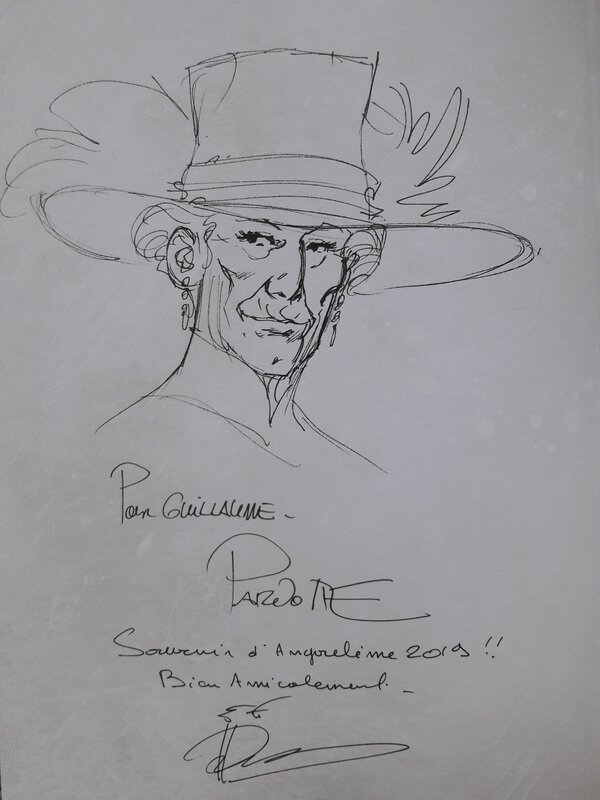 Pour GUILLAUME -
Souvenir d'Angoulême 2019 !!
Bien Amicalement. -